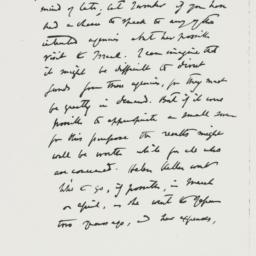 mind of late, but I wonder if you have
had a chance to speak to any of the
interested agencies about her possible
visit to Israel. I can imagine that
it might be difficult to divert
funds from those agencies, for they must
be greatly in demand. But if it were
possible to appropriate a small sum
for this purpose the results might
well be worth while for all who
are concerned. Helen Keller would
like to go, if possible, in March
or April, as she went to Japan
two years ago, and her expenses,